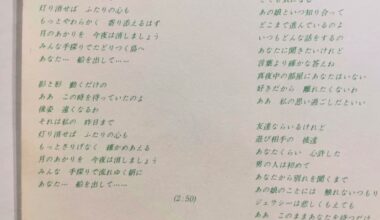 灯り消せば　ふたりの心も
もっとやわらかく　寄り添えるはず
月のあかりを　今夜は消しましょう
みんな手探りでたどりつく島へ
あなた…　船を出して……
影と影　動くだけの
ああ　この時を待っていたのよ
後姿　遠くなるわ
それは私の　昨日まで
灯り消せば　ふたりの心も
もっとさりげなく　確かめあえる
月のあかりを　今夜は消しましょう
みんな　手探りで流れゆく朝に
あなた…　船を出して……
(2:50)
あの娘といつ知り合って
どこまで進んでいるの
いつもどんな話をするの
あなたに聞きたいけれど
言葉より確かな答えね
真夜中の部屋にあなたはいない
好きだから　離れたくないわ
ああ　私の思い過ごしだといい
友達ならいるけれど
遊び相手の　彼達
あなたくらい　心許した
男の人は初めて
あなたから別れを聞くまで
あの娘のことには　触れないつもり
ジェラシーは悲しくもえても
ああ　このままあなたを待つだけ